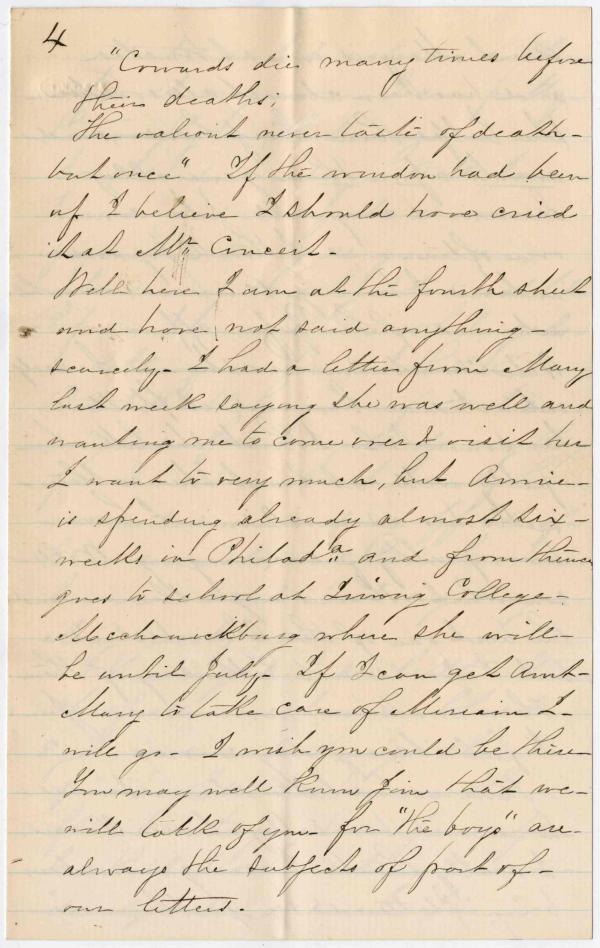 4
"Cowards die many times before
their deaths;
The valiant never taste of death -
but once" If the window had been
up I believe I should have cried
it at Mr Conceit -
Well here I am at the fourth sheet
and have not said anything -
scarcely - I had a letter from Mary
last week saying she was well and
wanting me to come over & visit her
I want to very much, but Annie -
is spending already almost six -
weeks in Philada and from thence
goes to school at Irving College -
Mechanicksburg where she will -
be until July - If I can get Aunt -
Mary to take care of Miriam I -
will go - I wish you could be there -
You may well know Jim that we -
will talk of you - for "the boys" are -
always the subjects of part of -
our letters -